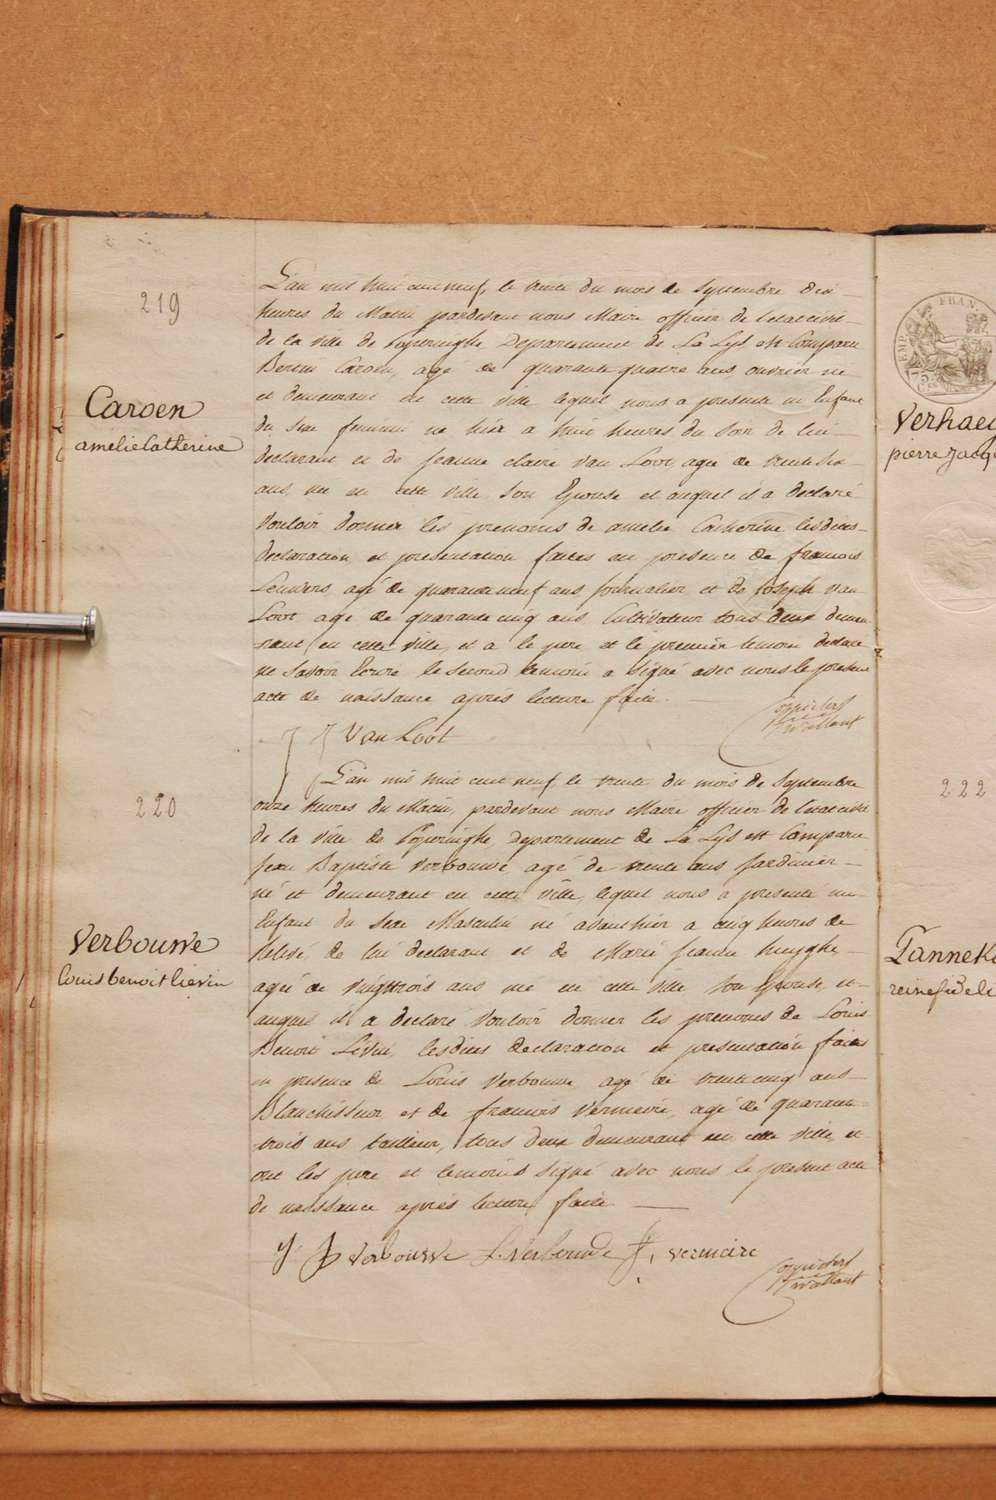 219
Caroen
amelie Catherine
L'an mil huit cent neuf, le trente du mois de Septembre dix
heures du Matin pardevant nous Maire officier de l'etat civil
de la ville de Poperinghe Departement de La Lys est Comparu
Caroen, agé de quarante quatre ans ouvrier né
et demeurant en cette ville lequel nous a presenté un Enfant
du sexe feminin né hier a huit heures du soir de lui
declarant et de jeanne claire Van Loot agée de trente six
ans, née en cette ville, son Epouse et auquel il a declaré
vouloir donner les prenoms de amelie Catherine, lesdites
declaration et presentation faites en presence de francois
agé de quarante neuf ans journalier et de Joseph van
Loot agé de quarante cinq ans Cultivateur tous deux demeu
rant en cette ville, et a le pere et le premier temoin declaré
ne savoir Ecrire le second temoin a signé avec nous le present
acte de naissance après lecture faite.
J J Van Loot
220
Verbouwe
Louis benoit Lievin
L'an mil huit cent neuf, le trente du mois de Septembre
onze heures du Matin, pardevant nous Maire officier de l'etat civil
de la ville de Poperinghe, Departement de La Lys est Comparu
Jean Baptiste Verbouwe agé de trente ans Jardinier
né et demeurant en cette ville, lequel nous a presenté un
Enfant du sexe Masculin né avant hier a cinq heures de
de lui declarant et de Marie jeanne huyghe
agée de vingt trois ans née en cette ville son Epouse, et
auquel il a declaré vouloir donner les prenoms de Louis
Benoit Lievin, lesdites declaration et presentation faites
en presence de Louis Verbouwe agé de trente cinq ans
Blanchisseur et de francois Vermeire, agé de quarante
trois ans tailleur, tous deux demeurant en cette ville, et
ont les pere et temoins signé avec nous le present acte
de naissance après lecture faite.
J B verbouwe L. Verbouwe F. vermeire
EMP FRAN
Verhae
pierre Jacq
222
Tannek
reine fideli